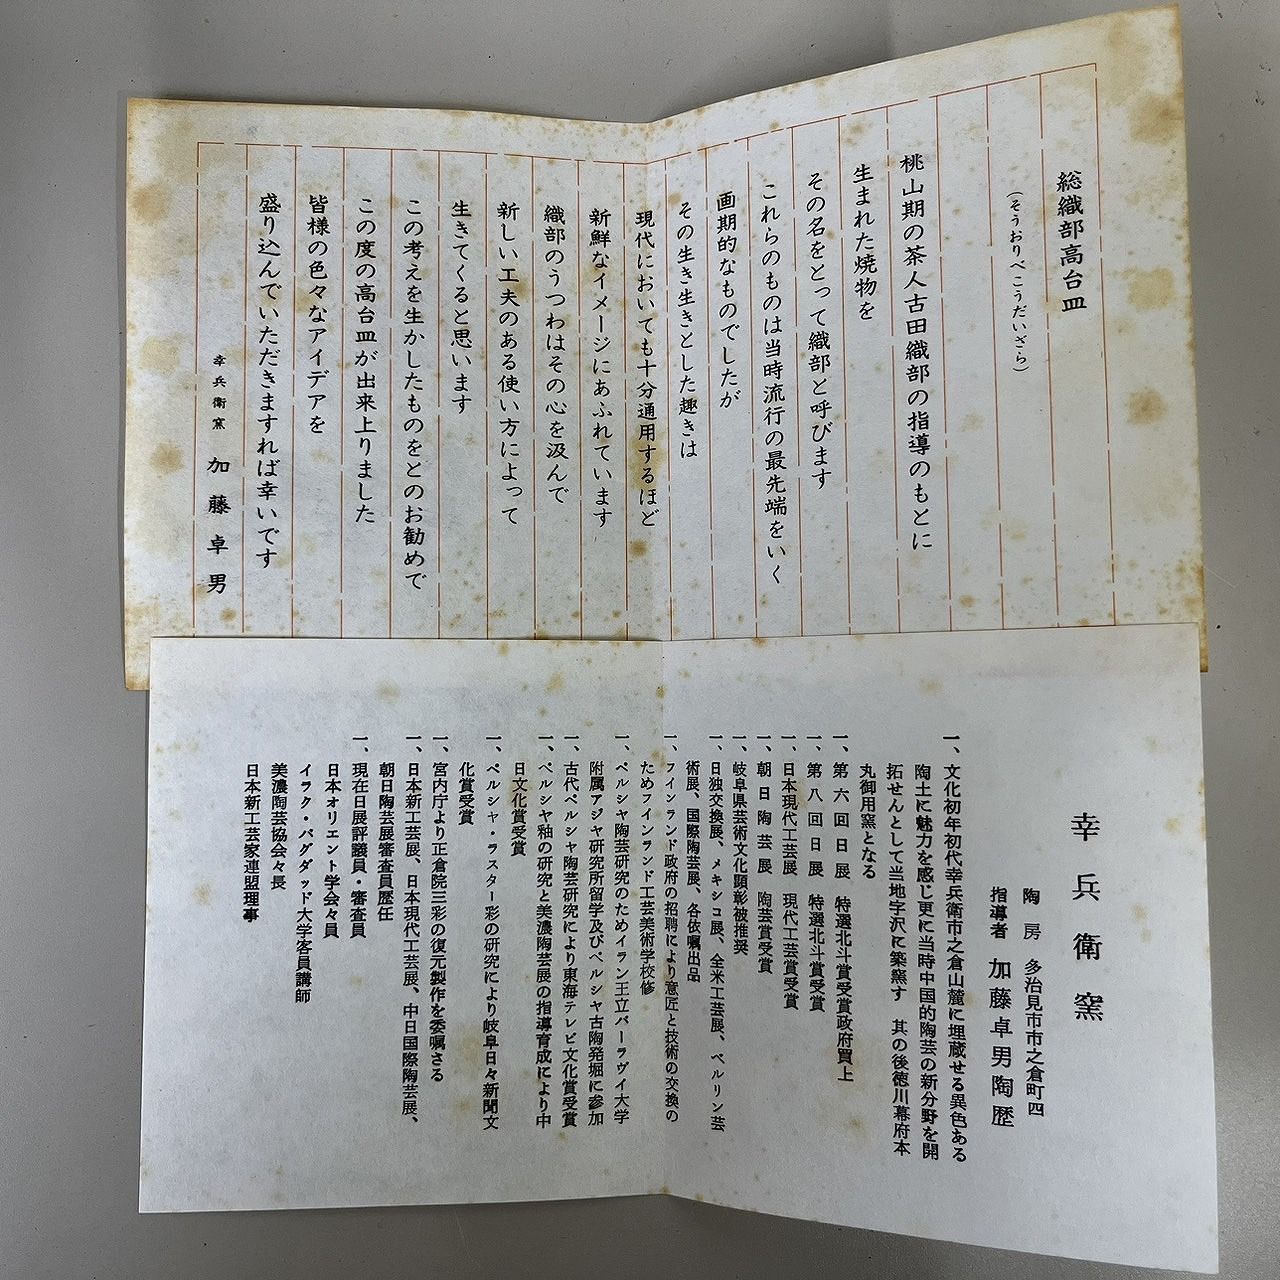 総織部高台皿
（そうおりべこうだいざら）
桃山期の茶人古田織部の指導のもとに
生まれた焼物を
その名をとって織部と呼びます
これらのものは当時流行の最先端をいく
画期的なものでしたが
その生き生きとした趣きは
現代においても十分通用するほど
新鮮なイメージにあふれています
織部のうつわはその心を汲んで
新しい工夫のある使い方によって
生きてくると思います
この考えを生かしたものをとのお勧めで
この度の高台皿が出来上りました
皆様の色々なアイデアを
盛り込んでいただきますれば幸いです
幸兵衛窯 加藤卓男
幸兵衛窯
陶房 多治見市市之倉町四
指導者 加藤卓男陶歴
一、文化初年初代幸兵衛市之倉山麓に埋蔵せる異色ある
陶土に魅力を感じ更に当時中国的陶芸の新分野を開
拓せんとして当地字沢に築窯す 其の後徳川幕府本
丸御用窯となる
一、第六回日展 特選北斗賞受賞政府買上
一、第八回日展 特選北斗賞受賞
一、日本現代工芸展 現代工芸賞受賞
一、朝日陶芸展 陶芸賞受賞
一、岐阜県芸術文化顕彰被推奨
一、日独交換展、メキシコ展、全米工芸展、ベルリン芸
術展、国際陶芸展、各依嘱出品
一、フインランド政府の招聘により意匠と技術の交換の
ためフインランド工芸美術学校修
一、ペルシヤ陶芸研究のためイラン王立パーラヴイ大学
附属アジヤ研究所留学及びペルシヤ古陶発堀に参加
一、古代ペルシヤ陶芸研究により東海テレビ文化賞受賞
一、ペルシヤ釉の研究と美濃陶芸展の指導育成により中
日文化賞受賞
一、ペルシヤ・ラスター彩の研究により岐阜日々新聞文
化賞受賞
一、宮内庁より正倉院三彩の復元製作を委嘱さる
一、日本新工芸展、日本現代工芸展、中日国際陶芸展、
朝日陶芸展審査員歴任
一、現在日展評議員・審査員
日本オリエント学会々員
イラク・バグダッド大学客員講師
美濃陶芸協会々長
日本新工芸家連盟理事